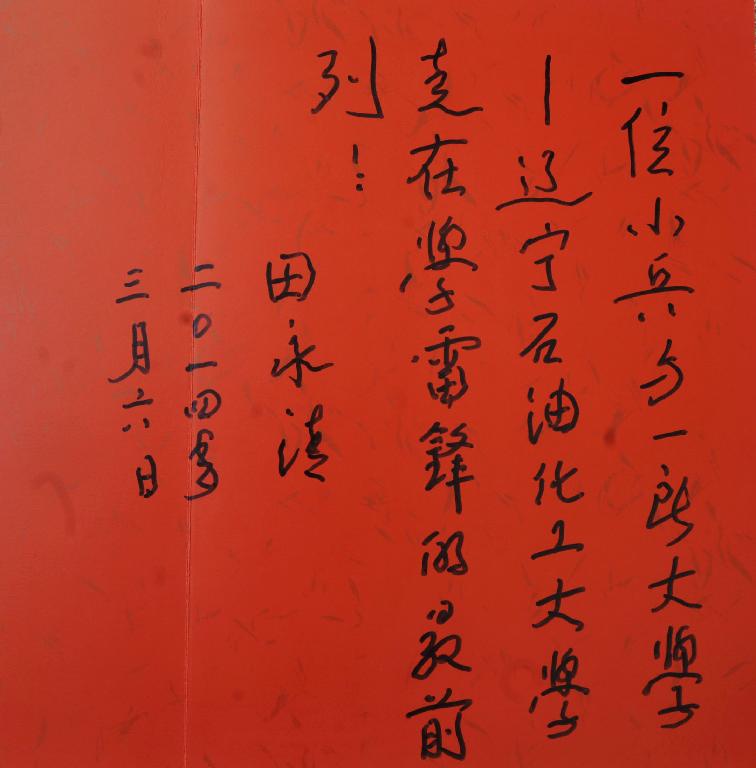 一位小兵与一所大學
—辽宁石油化工大學
走在學雷鋒的最前
列！
田永清
二〇一四年
三月六日